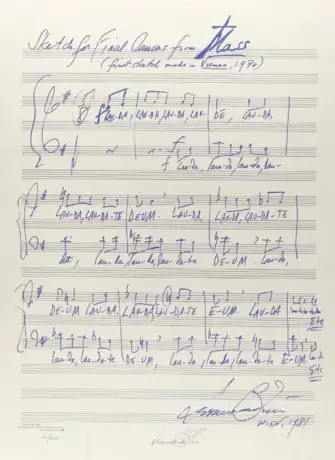 Sketch for Final Canons from Mass
(first sketch made in Vienna, 1970)
f LAU-DA, LAU-DA, LAU-DA, LAU- DE, LAU-DA,
f Lau-da, lau-da, lau-da, lau-
LAU-DA, LAU-DA-TE DE-UM. LAU-DA, LAU-DA, LAU-DA-TE
DE, lau-da, lau-da, lau-da-te DE-UM. lau-da,
DE-UM LAU-DA, LAU-DA LAU-DA-TE E-UM. LAU-DA
Etc
lau-da, lau-da-te DE-UM, lau-da, lau-da, lau-da-te E-UM.
Etc
WIEN, 1981